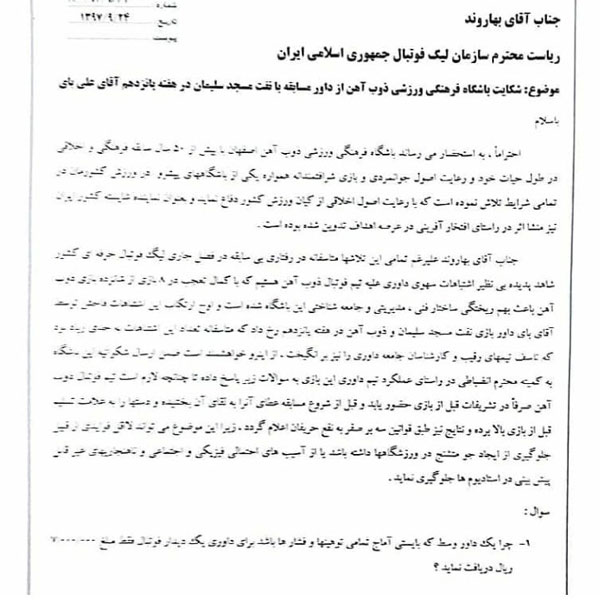 شماره
تاریخ ۱۳۹۷/۹/۲۴
پیوست
جناب آقای بهاروند
ریاست محترم سازمان لیگ فوتبال جمهوری اسلامی ایران
موضوع: شکایت باشگاه فرهنگی ورزشی ذوب آهن از داور مسابقه با نفت مسجد سلیمان در هفته پانزدهم آقای علی بای
باسلام
احتراماً ، به استحضار می رساند باشگاه فرهنگی ورزشی ذوب آهن اصفهان با بیش از ۵۰ سال سابقه فرهنگی و اخلاقی
در طول حیات خود و رعایت اصول جوانمردی و بازی شرافتمندانه همواره یکی از باشگاههای پیشرو در ورزش کشورمان در
تمامی شرایط تلاش نموده است که با رعایت اصول اخلاقی از کیان ورزش کشور دفاع نماید و بعنوان نماینده شایسته کشور ایران
نیز منشا اثر در راستای افتخار آفرینی در عرصه اهداف تدوین شده بوده است .
جناب آقای بهاروند علیرغم تمامی این تلاشها متاسفانه در رفتاری بی سابقه در فصل جاری لیگ فوتبال حرفه ای کشور
شاهد پدیده بی نظیر اشتباهات سهوی داوری علیه تیم فوتبال ذوب آهن هستیم که با کمال تعجب در ۸ بازی از شانزده بازی ذوب
آهن باعث بهم ریختگی ساختار فنی ، مدیریتی و جامعه شناختی این باشگاه شده است و اوج ارتکاب این اشتباهات فاحش توسط
آقای بای داور بازی نفت مسجد سلیمان و ذوب آهن در هفته پانزدهم رخ داد که متاسفانه تعداد این اشتباهات به حدی زیاد بود
که تاسف تیمهای رقیب و کارشناسان جامعه داوری را نیز بر انگیخت . از اینرو خواهشمند است ضمن ارسال شکوائیه این باشگاه
به کمیته محترم انضباطی در راستای عملکرد تیم داوری این بازی به سوالات زیر پاسخ داده تا چنانچه لازم است تیم فوتبال ذوب
آهن صرفاً در تشریفات قبل از بازی حضور یابد و قبل از شروع مسابقه عطای آنرا به لقای آن بخشیده و دستها را به علامت تسلیم
قبل از بازی بالا برده و نتایج نیز طبق قوانین سه بر صفر به نفع حریفان اعلام گردد . زیرا این موضوع می تواند لااقل فوایدی از قبیل
جلوگیری از ایجاد جو متشنج در ورزشگاهها داشته باشد یا از آسیب های احتمالی فیزیکی و اجتماعی و ناهنجاریهای غیر قابل
پیش بینی در استادیوم ها جلوگیری نماید .
سوال :
۱- چرا یک داور وسط که بایستی آماج تمامی توهینها و فشار ها باشد برای داوری یک دیدار فوتبال فقط مبلغ
ریال دریافت نماید ؟